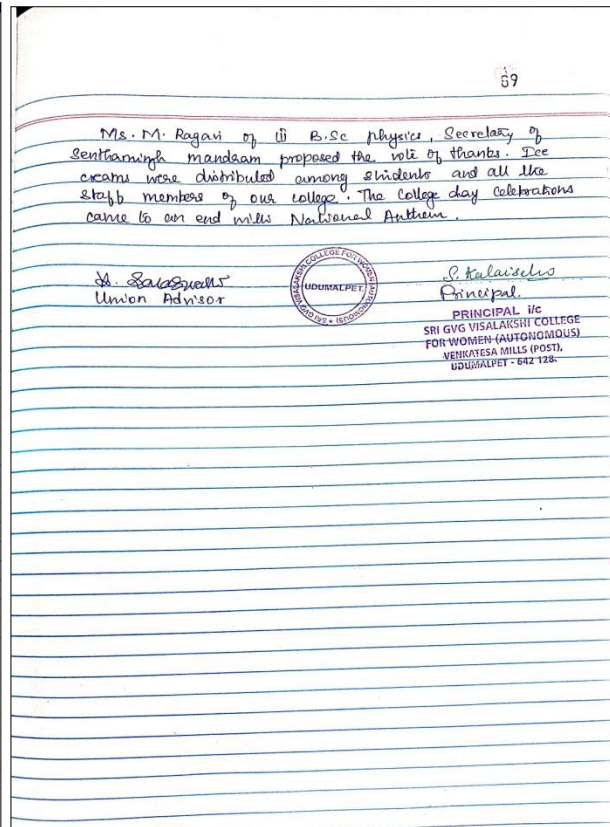 69
Ms. M. Ragavi of iii B.Sc physics, Secretary of
Senthamizh mandram proposed the vote of thanks. Ice
creams were distributed among students and all the
staff members of our college. The College day Celebrations
came to an end with National Anthem.
Union Advisor
SRI GVG VISALAKSHI COLLEGE FOR WOMEN (AUTONOMOUS)
UDUMALPET.
S. Kalaiselvi
Principal.
PRINCIPAL i/c
SRI GVG VISALAKSHI COLLEGE
FOR WOMEN (AUTONOMOUS)
VENKATESA MILLS (POST),
UDUMALPET - 642 128.